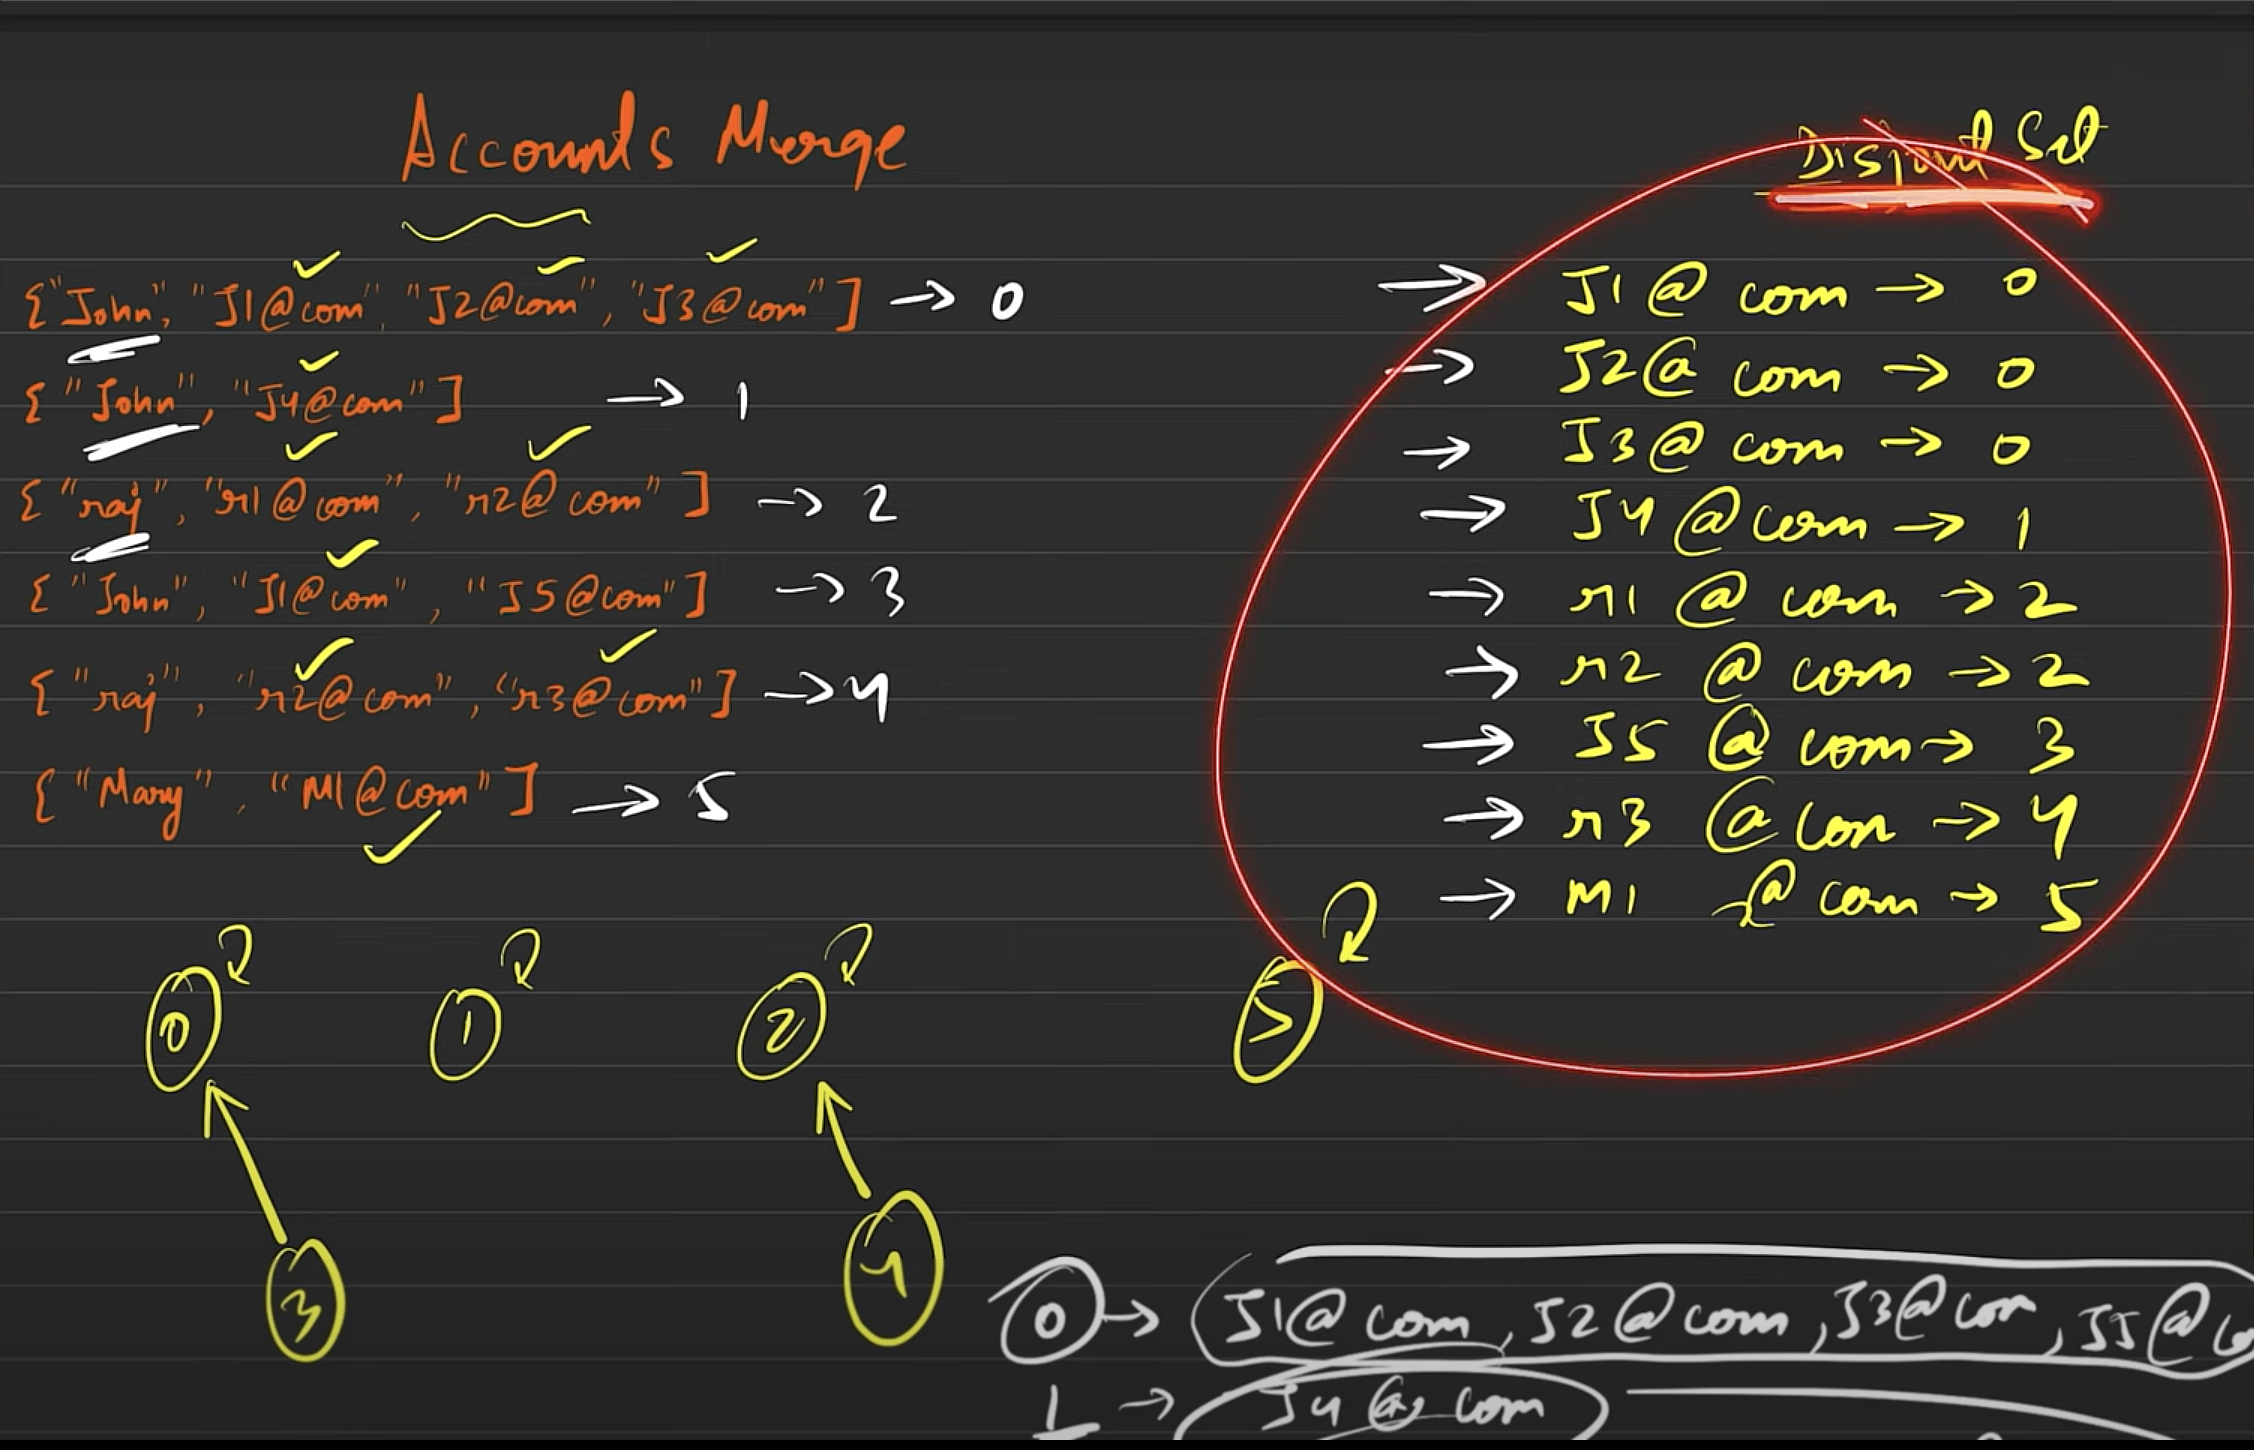 Accounts Merge
Disjoint Set
{"John", "J1@com", "J2@com", "J3@com"] → 0
{"John", "J4@com"] → 1
{"raj", "r1@com", "r2@com"] → 2
{"John", "J1@com", "J5@com"] → 3
{"raj", "r2@com", "r3@com"] → 4
{"Mary", "M1@com"] → 5
→ J1@com → 0
→ J2@com → 0
→ J3@com → 0
→ J4@com → 1
→ r1@com → 2
→ r2@com → 2
→ J5@com → 3
→ r3@com → 4
→ M1@com → 5
0 1 2 5
3 4
0 → J1@com, J2@com, J3@com, J5@co
1 → J4@com